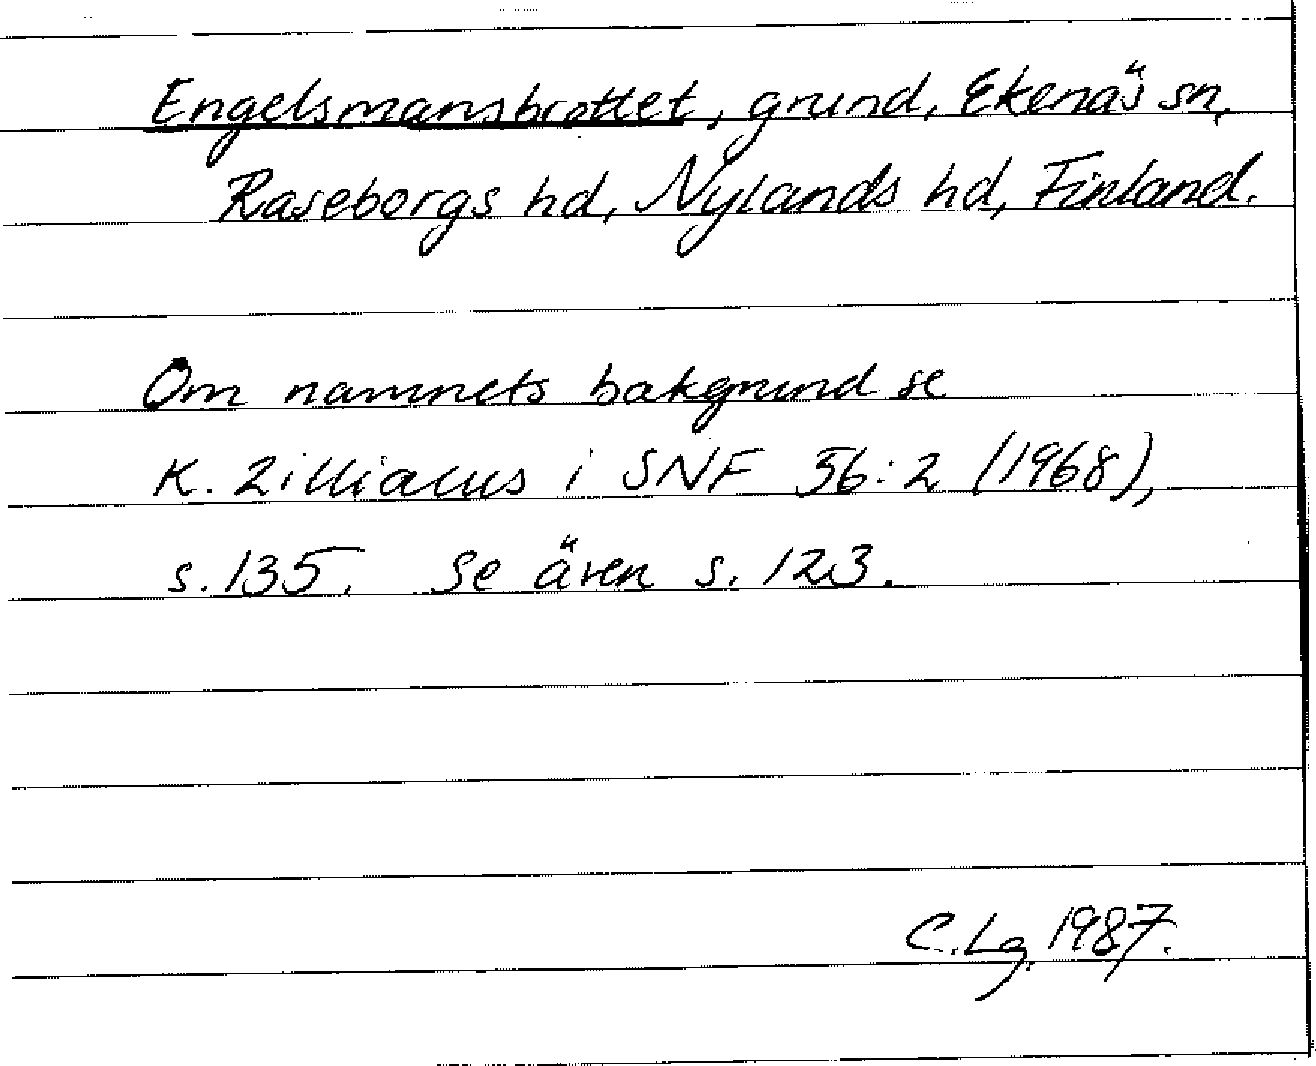 Engelsmansbrottet, grund, Ekenäs sn,
Raseborgs hd, Nylands hd, Finland.
Om namnets bakgrund se
K. Zilliacus i SNF 56:2 (1968),
s. 135. Se även s. 123.
C.Lg. 1987.